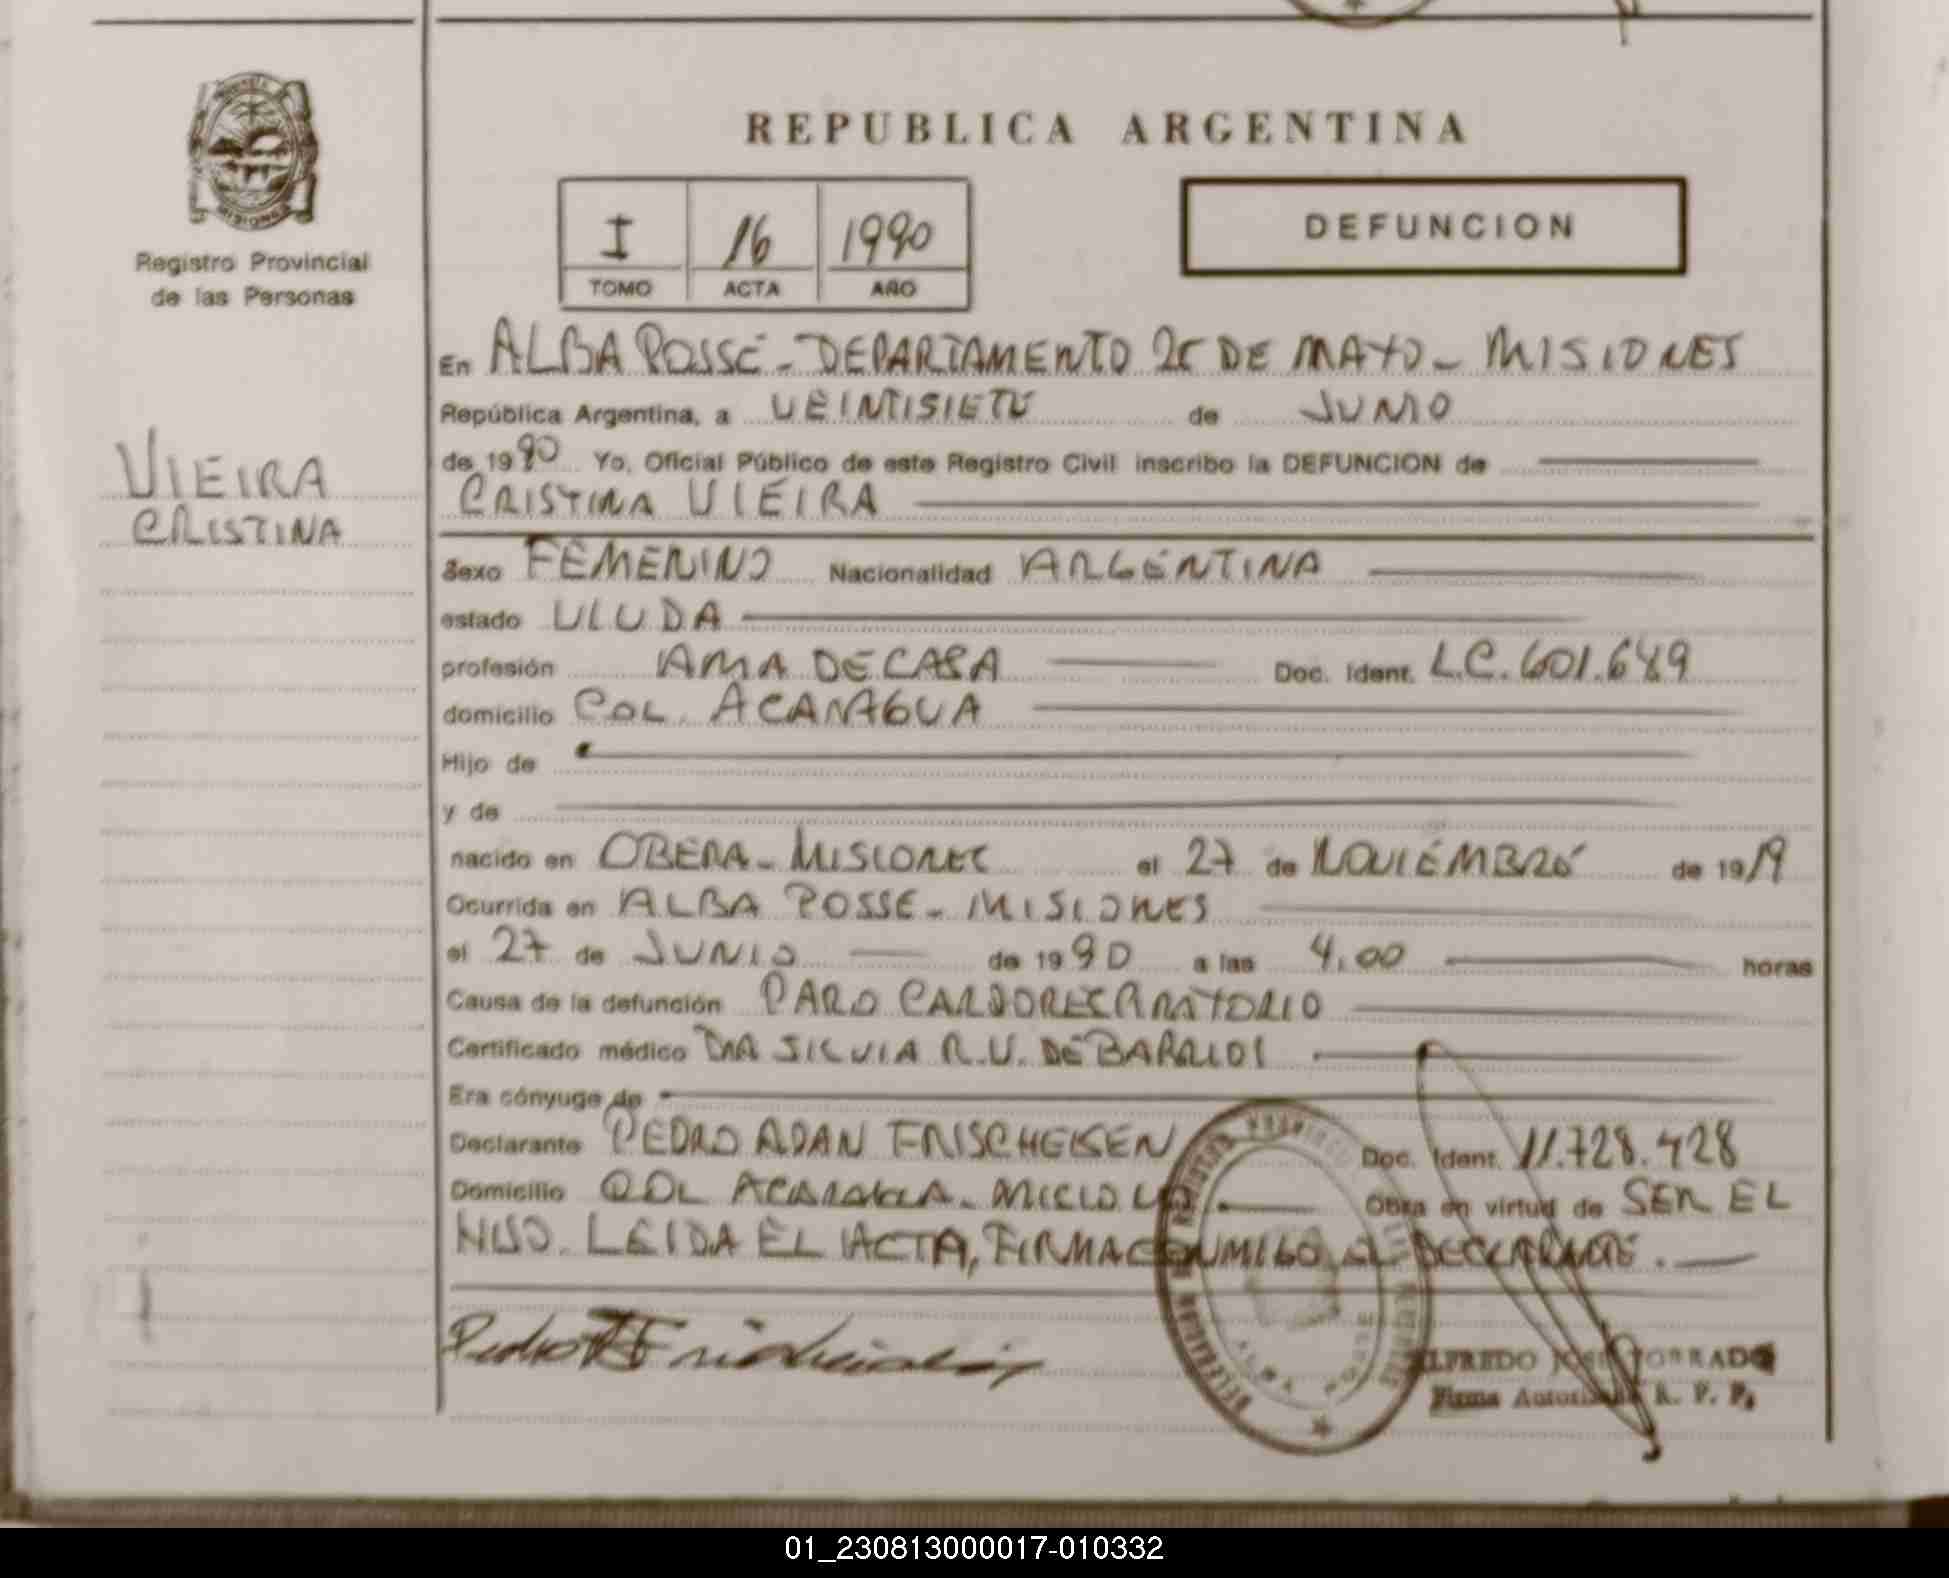 REPUBLICA ARGENTINA
MISIONES
Registro Provincial
de las Personas
I 16 1990
TOMO ACTA AÑO
DEFUNCION
VIEIRA
CRISTINA
En ALBA POSSE - DEPARTAMENTO 25 DE MAYO - MISIONES
República Argentina, a VEINTISIETE de JUNIO
de 1990 Yo, Oficial Público de este Registro Civil inscribo la DEFUNCION de
CRISTINA VIEIRA
Sexo FEMENINO Nacionalidad ARGENTINA
estado VIUDA
profesión AMA DE CASA Doc. Ident. L.C. 601.649
domicilio COL. ACARAGUA
Hijo de
y de
nacido en OBERA - MISIONES el 27 de NOVIEMBRE de 1919
Ocurrida en ALBA POSSE - MISIONES
el 27 de JUNIO de 1990 a las 4,00 horas
Causa de la defunción PARO CARDORESPIRATORIO
Certificado médico DRA SILVIA R.V. DE BARRIOS
Era cónyuge de
Declarante PEDRO ADAN FRISCHEISEN Doc. Ident. 11.728.428
Domicilio COL ACARAGUA - Obra en virtud de SER EL
HIJO. LEIDA EL ACTA, FIRMA CONMIGO EL DECLARANTE.
ALFREDO JOSE TORRADO
Firma Autorizada R. P. P.
01_230813000017-010332